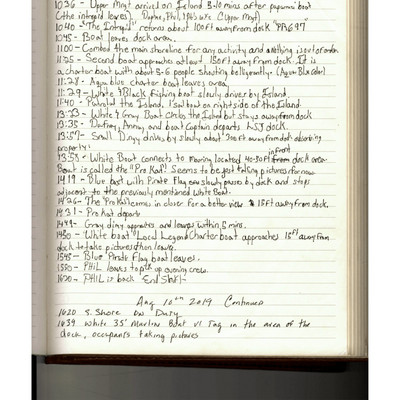 1036 - Upper Mgt arrived on Island 5-10 mins after paparazzi boat
(the intrepid leaves). Daphne, Phil, (Upper Mgt)
1040 - "The Intrepid" returns about 100ft away from dock "PR697"
1045 - Boat leaves dock area.
1100 - Combed the main shoreline for any activity and nothing is out of order
11:25 - Second boat approaches about 150ft away from dock. It is
a charter boat with about 5-6 people shouting belligerently. (Aqua Blue Color)
11:28 - Aqua blue charter boat leaves area
11:29 - White & Black Fishing boat slowly driver by Island.
11:40 - Patrolled the Island. 1 sail boat on rightside of the Island.
13:23 - White & Gray Boat Circle the Island but stays away from dock
13:35 - Dufrey, Ammy and boat Captain departs LSJ dock.
13:57 - Small Dingy drives by slowly about 300ft away from dock observing
property.
13:58 - White Boat connects to mooring located 40-50ft infront from dock area
Boat is called the "Pro Kat". Seems to be just taking pictures for now
14:19 - Blue boat with Pirate Flag on slowly passes by dock and stops
adjacent to the previously mentioned White Boat.
14:26 - The "Pro Kat" comes in closer for a better view 15ft away from dock.
14:31 - Pro Kat departs
1449 - Gray dingy approaches and leaves within 5 mins.
1450 - White boat "Local Legend Charter boat approaches 15ft away from
dock to take pictures then leaves.
1545 - Blue Pirate Flag boat leaves.
1550 - PHIL leaves to pick up evening crew.
1620 - PHIL is back "End Shift"
Aug 10th 2019 Continued
1620 S. Shore on Duty
1639 White 35' Marlin Boat VI Tag in the area of the
dock, occupants taking pictures